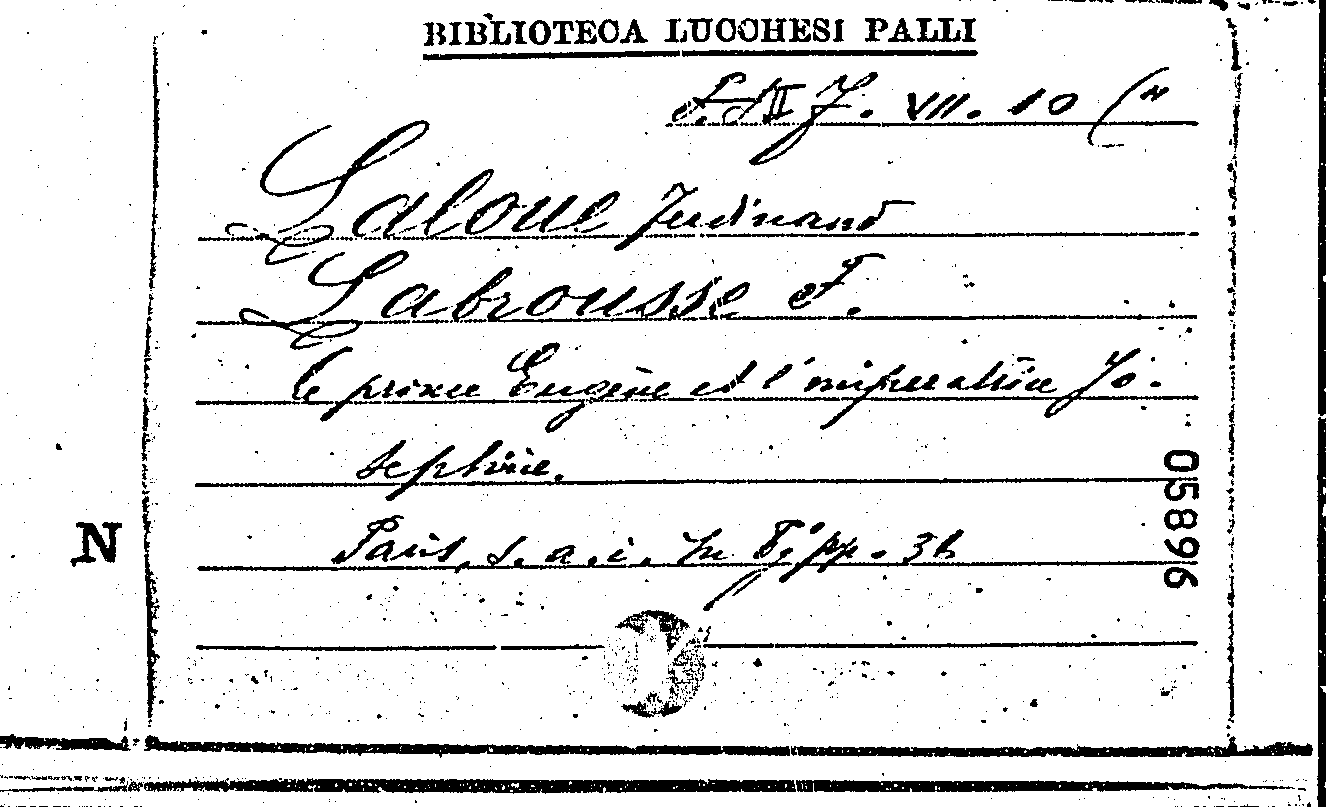 BIBLIOTECA LUCCHESI PALLI
VII. 10 (4
Laloue Ferdinand
Labrousse F.
le prince Eugène et l'imperatrice Jo-
sephine.
Paris, s. a. i. in 8; pp. 36
05896
N